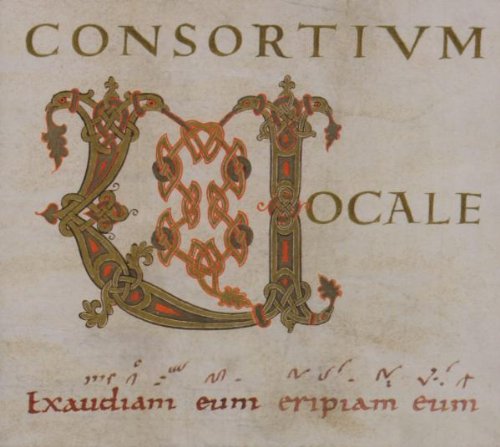 CONSORTIVM
VOCALE
Exaudiam eum eripiam eum